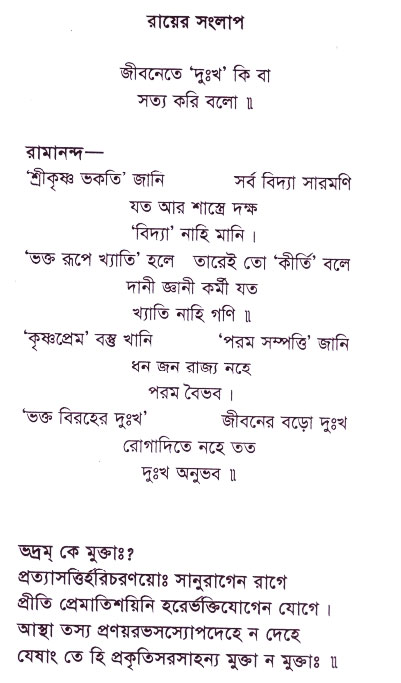 রায়ের সংলাপ
জীবনেতে ‘দুঃখ’ কি বা
সত্য করি বলো ॥
রামানন্দ—
‘শ্রীকৃষ্ণ ভকতি’ জানি সর্ব বিদ্যা সারমণি
যত আর শাস্ত্রে দক্ষ
‘বিদ্যা’ নাহি মানি ।
‘ভক্ত রূপে খ্যাতি’ হলে তারেই তো ‘কীর্তি’ বলে
দানী জ্ঞানী কর্মী যত
খ্যাতি নাহি গণি ॥
‘কৃষ্ণপ্রেম’ বস্তু খানি ‘পরম সম্পত্তি’ জানি
ধন জন রাজ্য নহে
পরম বৈভব ।
‘ভক্ত বিরহের দুঃখ’ জীবনের বড়ো দুঃখ
রোগাদিতে নহে তত
দুঃখ অনুভব ॥
ভদ্রম্ কে মুক্তাঃ?
প্রত্যাসত্তির্হরিচরণয়োঃ সানুরাগেন রাগে
প্রীতি প্রেমাতিশয়িনি হরের্ভক্তিযোগেন যোগে ।
আস্থা তস্য প্রণয়রভসস্যোপদেহে ন দেহে
যেষাং তে হি প্রকৃতিসরসাহন্য মুক্তা ন মুক্তাঃ ॥